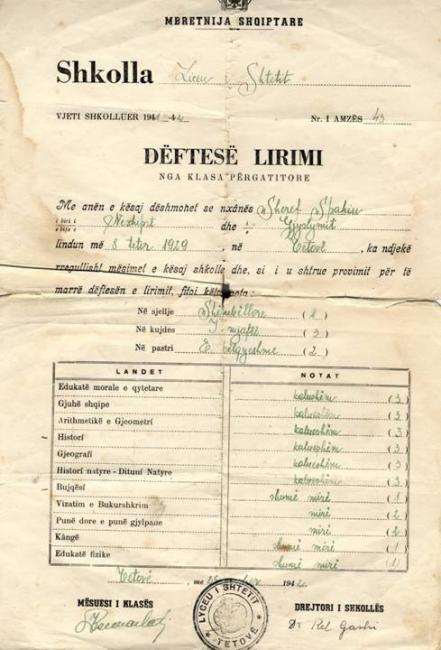 MBRETNIJA SHQIPTARE
Shkolla Liceu i Shtetit
VJETI SHKOLLUER 1941-42 Nr. I AMZËS 43
DËFTESË LIRIMI
NGA KLASA PËRGATITORE
Me anën e kësaj dëshmohet se nxânës Sheref Spahiu
i biri i
e bija e
dhe
lindun më 8 tetor 1929, në Tetovë, ka ndjekë
rregullisht mësimet e kësaj shkolle dhe, si i u shtrue provimit për të
marrë dëftesën e lirimit, fitoi këto nota:
Në sjellje Shëmbëllore (2)
Në kujdes (3)
Në pastri (2)
LANDET NOTAT
Edukatë morale e qytetare kalueshëm (3)
Gjuhë shqipe kalueshëm (3)
Arithmetikë e Gjeometri kalueshëm (3)
Histori kalueshëm (3)
Gjeografi kalueshëm (3)
Histori natyre - Dituni Natyre kalueshëm (3)
Bujqësi shumë mirë (1)
Vizatim e Bukurshkrim mirë (2)
Punë dore e punë gjylpane mirë (2)
Kângë shumë mirë (1)
Edukatë fizike shumë mirë (1)
Tetovë, me 1942
MËSUESI I KLASËS DREJTORI I SHKOLLËS
LYCEU I SHTETIT
TETOVË